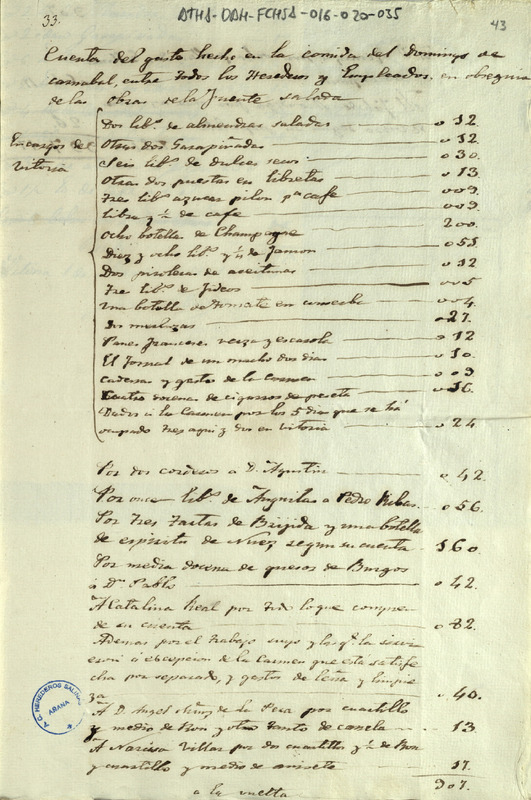 33.
ATHA-DAH-FCHSA-016-020-035
43
Cuenta del gasto hecho en la comida del Domingo de
carnabal entre todos los Herederos y Empleados en obsequio
de las Obras de la Fuente salada
Encargos de
Vitoria
Dos lib.s de almendras saladas 012.
Otras dos Garapiñadas 012.
Seis lib.s de dulces secos 030.
Otras dos puestas en libretas 013
Tres lib.s azucar pilon p.a cafe 009.
libra y ½ de cafe 009.
Ocho botellas de Champagne 200.
Diez y ocho lib.s y ¼ de Jamon 053
Dos de aceitunas 012
Tres lib.s de fideos 005
Una botella de tomate en conserba 004.
merluzas 027.
Panes franceses berza y escarola 012
El Jornal de un macho dos dias 010.
y gastos de la Carmen 009
Cuatro docenas de cigarros de peseta 016.
Dados á la Carmen por los 5 dias que se há
ocupado tres aqui y dos en Vitoria 024
Por dos corderos a D. Agustin 042.
Por once lib.s de Anguilas a Pedro Ribas 056.
Por tres tartas de Brijida y una botella
de espiritu de Nuez segun su cuenta 160.
Por media docena de quesos de Burgos
á D.n Pablo 042.
A Catalina Real por todo lo que compro
de su cuenta 082.
Ademas por el trabajo suyo y las q.e la
á excepcion de la Carmen que esta satisfe
cha por separado, y gastos de leña y limpie
za 040.
A D. Angel Nuñez de la Pera por cuartillo
y medio de Ron y otro tanto de canela 13
A Narcisa Villar por dos cuartillos y ½ de Ron
y cuartillo y medio de anisete 17.
a la vuelta 907.
A.C. HEREDEROS SALINAS
ARANA